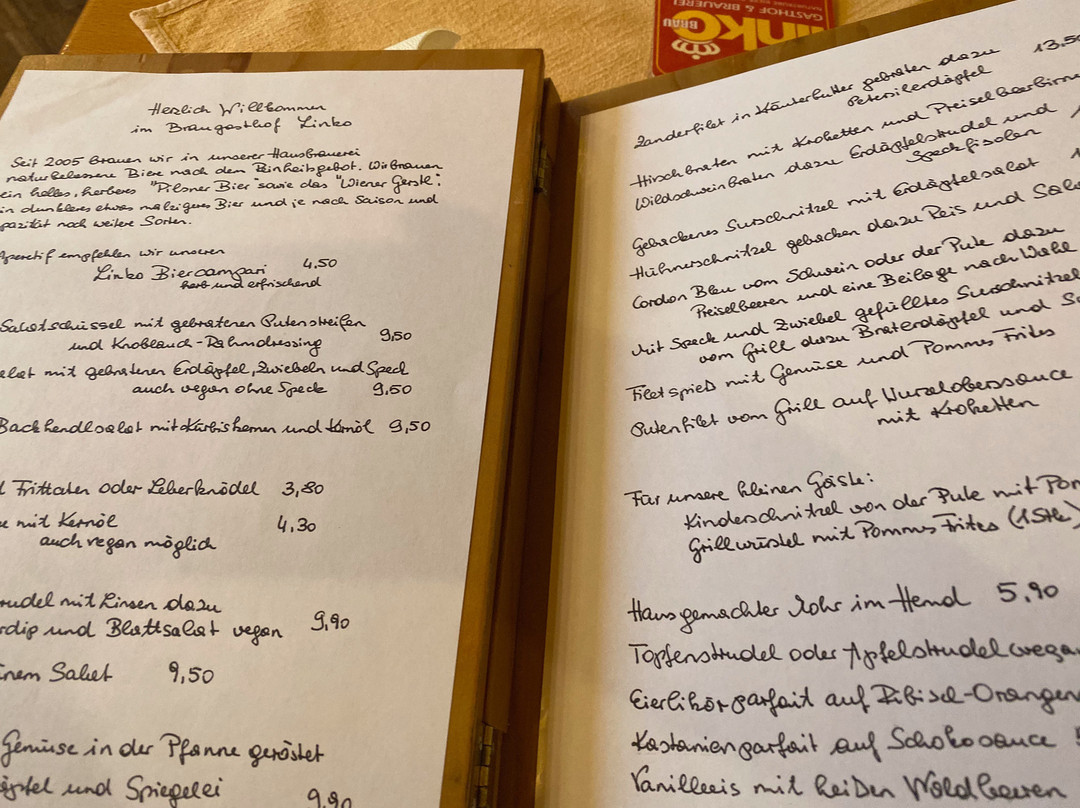 Herzlich Willkommen
im Braugasthof Linko
Seit 2005 brauen wir in unserer Hausbrauerei
naturbelassene Biere nach dem Reinheitsgebot. Wir brauen
ein helles, herbes "Pilsner Bier" sowie das "Wiener Gerstl".
in dunkleres etwas malzigeres Bier und je nach Saison und
pazität noch weitere Sorten.
Aperitif empfehlen wir unseren
Linko Biercampari 4,50
herb und erfrischend
Salatschüssel mit gebratenen Putenstreifen
und Knoblauch-Rahmdressing 9,50
alat mit gebratenen Erdäpfel, Zwiebeln und Speck
auch vegan ohne Speck 9,50
Backhendlsalat mit Kürbiskernen und Kernöl 9,50
Frittaten oder Leberknödel 3,80
mit Kernöl 4,30
auch vegan möglich
rudel mit Linsen dazu
rdip und Blattsalat vegan 9,90
nem Salat 9,50
Gemüse in der Pfanne geröstet
äpfel und Spiegelei 9,90
GASTHOF & BRAUEREI
linko
BRÄU
Zanderfilet in Kräuterbutter gebraten dazu 13,50
Petersilerdäpfel
Hirschbraten mit Kroketten und Preiselbeerbirne
Wildschweinbraten dazu Erdäpfelstrudel und
Speckfisolen
Gebackenes Surschnitzel mit Erdäpfelsalat
Hühnerschnitzel gebacken dazu Reis und Sala
Cordon Bleu vom Schwein oder der Pute dazu
Preiselbeeren und eine Beilage nach Wahl
Mit Speck und Zwiebel gefülltes Surschnitzel
vom Grill dazu Braterdäpfel und Sa
Filetspieß mit Gemüse und Pommes Frites
Putenfilet vom Grill auf Wurzelobersauce
mit Kroketten
Für unsere kleinen Gäste:
Kinderschnitzel von der Pute mit Pom
Grillwürstel mit Pommes Frites (1 Stk)
Hausgemachter Mohr im Hemd 5,90
Topfenstrudel oder Apfelstrudel vega
Eierlikörparfait auf Ribisel-Orangen
Kastanienparfait auf Schokosauce
Vanilleeis mit heißen Waldbeeren